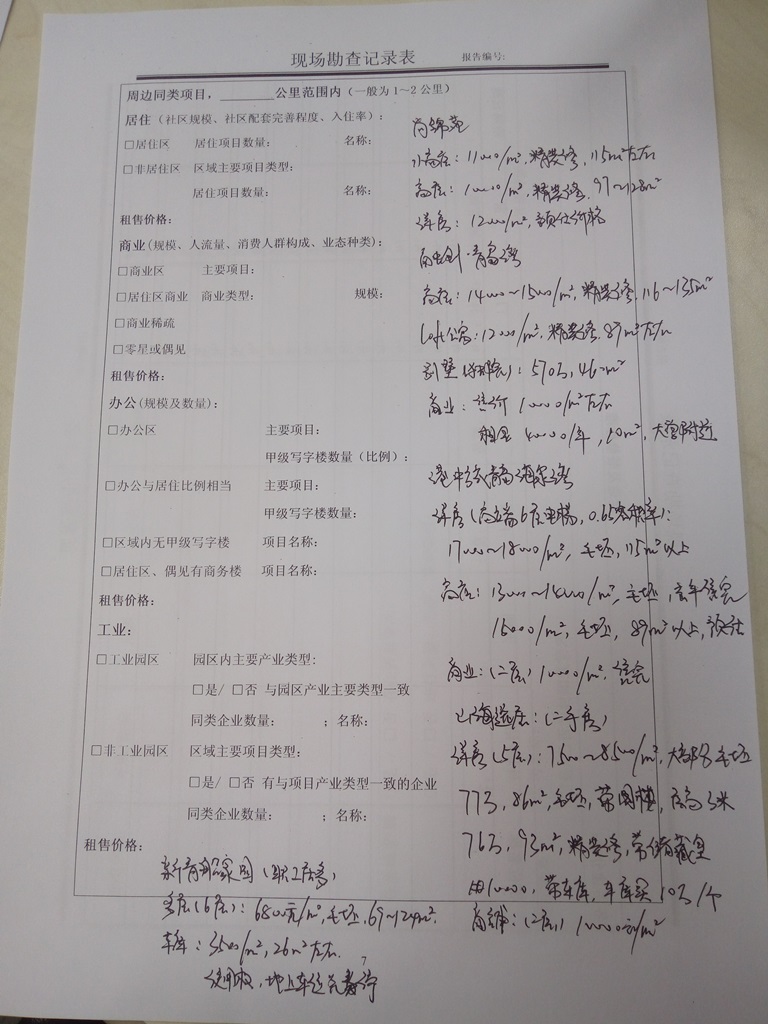 现场勘查记录表 报告编号:
周边同类项目，________公里范围内（一般为1~2公里）
居住（社区规模、社区配套完善程度、入住率）：
□居住区 居住项目数量： 名称：
□非居住区 区域主要项目类型：
居住项目数量： 名称：
租售价格：
商业(规模、人流量、消费人群构成、业态种类)：
□商业区 主要项目：
□居住区商业 商业类型： 规模：
□商业稀疏
□零星或偶见
租售价格：
办公(规模及数量)：
□办公区 主要项目：
甲级写字楼数量（比例）：
□办公与居住比例相当 主要项目：
甲级写字楼数量：
□区域内无甲级写字楼 项目名称：
□居住区、偶见有商务楼 项目名称：
租售价格：
工业：
□工业园区 园区内主要产业类型:
□是/ □否 与园区产业主要类型一致
同类企业数量： ；名称：
□非工业园区 区域主要项目类型：
□是/ □否 有与项目产业类型一致的企业
同类企业数量： ；名称：
租售价格：
小高层：11000/m², 精装修, 115m²左右
高层：10000/m², 精装修, 97~128m²
洋房：12000/m²,
高层：14000~15000/m², 精装修, 116~135m²
loft公寓：12000/m², 精装修, 89m²左右
570万, 46 m²
商业：售价 10000/m²左右
租金 40000/年,
洋房（ 6层电梯, 0.65容积率）：
17000~18000/m², 毛坯, 115m²以上
高层：13000~14000/m², 毛坯, 去年售完
15000/m², 毛坯, 89m²以上,
商业：(二层) 10000/m², 售完
(二手房)
洋房(5层)：7500~8500/m², 大部分毛坯
77万, 86m², 毛坯, 带阁楼, 层高3米
76万, 93m², 精装修, 带储藏室
带车库, 车库买10万/个
商铺：(2层) 10000元/m²
家园（职工房）
多层(6层)：6800元/m², 毛坯, 69~129m².
车库：3500/m², 26m²左右.
使用权, 地上车位